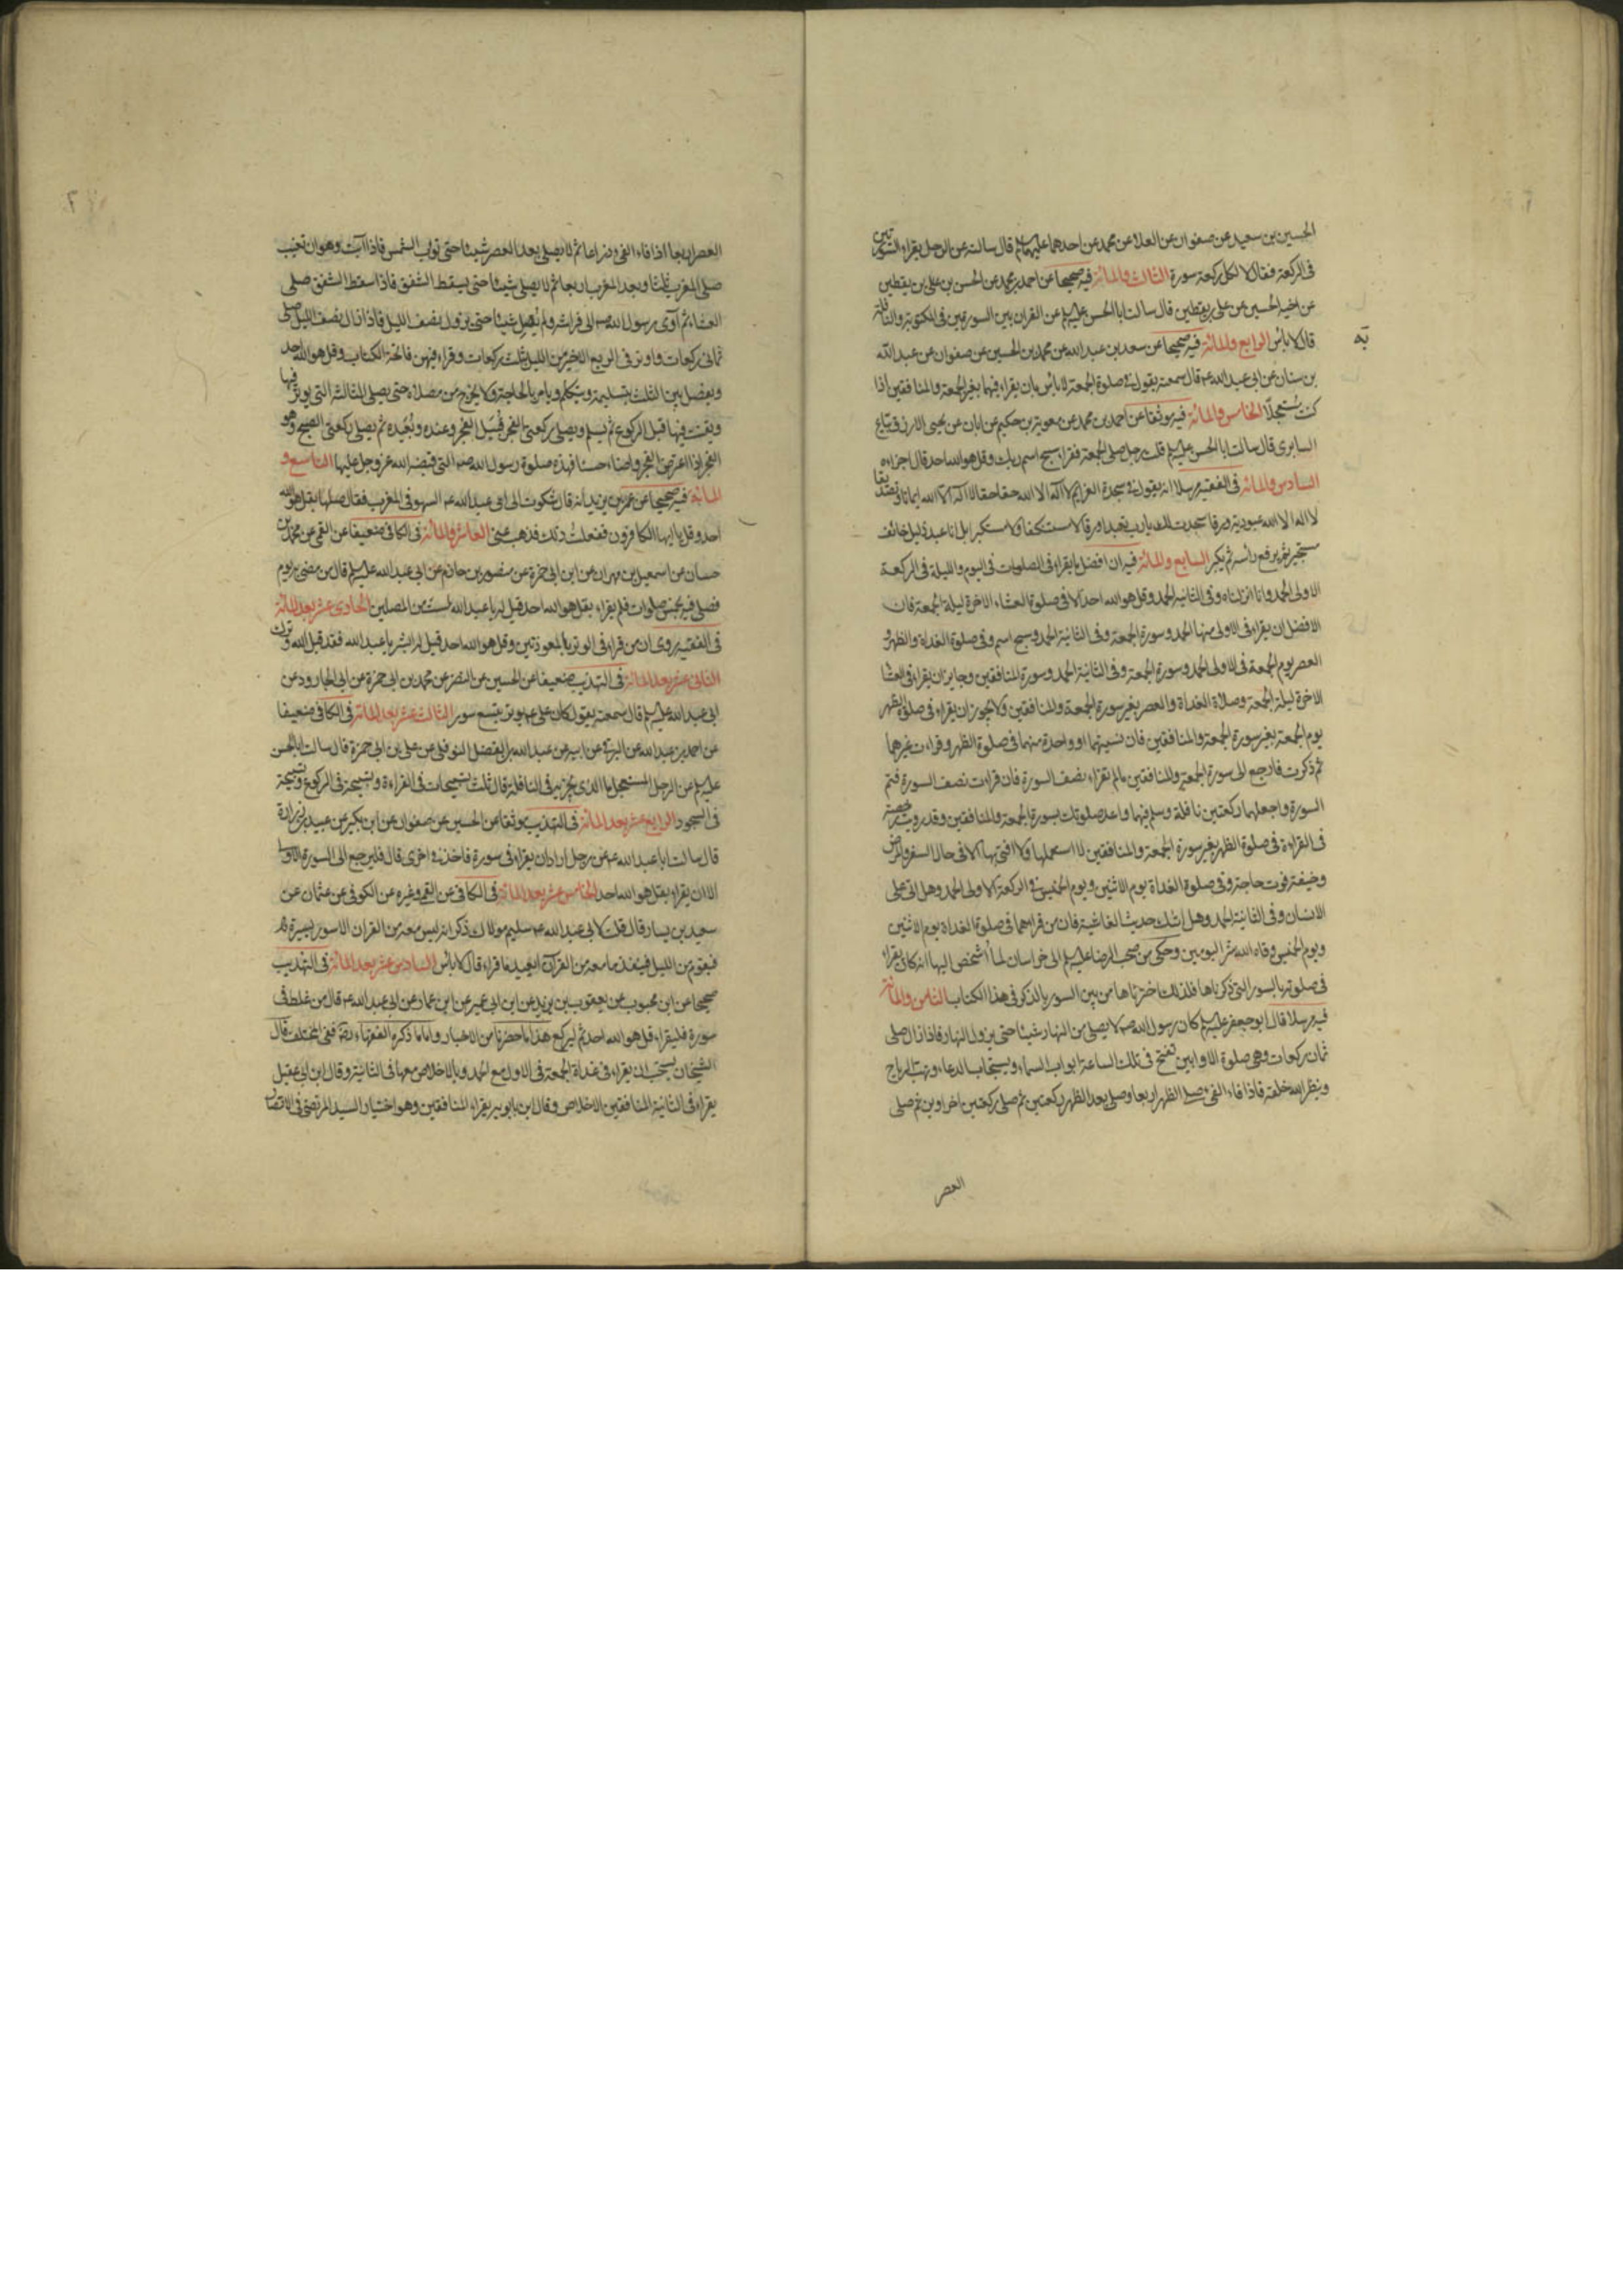 الحسين بن سعيد عن صفوان عن العلا عن محمد عن احدهما عليهما السلم قال سالته عن الرجل يقراء السورتين
فى الركعة فقال لا لكل ركعة سورة الثالث والمائة فيه صحيحا عن احمد بن محمد عن الحسن بن على بن يقطين
عن اخيه الحسين عن على بن يقطين قال سالت ابا الحسن عليه السلم عن القران بين السورتين فى المكتوبة والنافلة
قال لا بأس الرابع والمائة فيه صحيحا عن سعد بن عبد الله عن محمد بن الحسين عن صفوان عن عبد الله
بن سنان عن ابى عبد الله ع قال سمعته يقول فى صلوة الجمعة لا بأس بان يقراء فيها بغير الجمعة والمنافقين اذا
كنت مستعجلا الخامس والمائة فيه موثقا عن احمد بن محمد عن معوية بن حكيم عن ابان عن يحيى الازرق بياع
السابرى قال سالت ابا الحسن عليه السلم قلت رجل صلى الجمعة فقراء سبح اسم ربك وقل هو الله احد قال اجزاه
السادس والمائة فى الفقيه مرسلا انه يقول فى سجدة العزايم لا اله الا الله حقا حقا لا اله الا الله ايمانا وتصديقا
لا اله الا الله عبودية ورقا سجدت لك يا رب تعبدا ورقا لا مستنكفا ولا مستكبرا بل انا عبد ذليل خائف
مستجير ثم يرفع راسه ثم يكبر السابع والمائة فيه ان افضل ما يقراء فى الصلوات فى اليوم والليلة فى الركعة
الاولى الحمد وانا انزلناه وفى الثانية الحمد وقل هو الله احد الا فى صلوة العشاء الاخرة ليلة الجمعة فان
الافضل ان يقراء فى الاولى منها الحمد وسورة الجمعة وفى الثانية الحمد وسبح اسم وفى صلوة الغداة والظهر و
العصر يوم الجمعة فى الاولى الحمد وسورة الجمعة وفى الثانية الحمد وسورة المنافقين وجايز ان يقراء فى العشا
الاخرة ليلة الجمعة وصلاة الغداة والعصر بغير سورة الجمعة والمنافقين ولا يجوز ان يقراء فى صلوة الظهر
يوم الجمعة بغير سورة الجمعة والمنافقين فان نسيتهما او واحدة منهما فى صلوة الظهر وقراءت غيرهما
ثم ذكرت فارجع الى سورة الجمعة والمنافقين ما لم تقراء نصف السورة فان قراءت نصف السورة فتم
السورة واجعلهما ركعتين نافلة وسلم فيهما واعد صلوتك بسورة الجمعة والمنافقين وقد رويت رخصة
فى القراءة فى صلوة الظهر بغير سورة الجمعة والمنافقين لا استعملها ولا افتى بها الا فى حال السفر والمرض
وخيفة فوت حاجة وفى صلوة الغداة يوم الاثنين ويوم الخميس فى الركعة الاولى الحمد وهل اتى على
الانسان وفى الثانية الحمد وهل اتيك حديث الغاشية فان من قراءهما فى صلوة الغداة يوم الاثنين
ويوم الخميس وقاه الله شر اليومين وحكى من صحب الرضا عليه السلم الى خراسان لما أشخص اليها انه كان يقراء
فى صلوته بالسور التى ذكرناها فلذلك اخترناها من بين السور بالذكر فى هذا الكتاب الثامن والمائة
فيه مرسلا قال ابو جعفر عليه السلم كان رسول الله ص لا يصلى من النهار شيئا حتى يزول النهار فاذا زال صلى
ثمان ركعات وهى صلوة الاوابين تفتح فى تلك الساعة ابواب السماء ويستجاب الدعاء وتهب الرياح
وينظر الله خلقه فاذا فاء الفئ صلى الظهر اربعا وصلى بعد الظهر ركعتين ثم صلى ركعتين اخراوين ثم صلى
العصر
العصر اربعا اذا فاء الفئ ذراعا ثم لا يصلى بعد العصر شيئا حتى تؤب الشمس فاذا ابت وهو ان تغيب
صلى المغرب ثلثا وبعد المغرب اربعا ثم لا يصلى شيئا حتى يسقط الشفق فاذا سقط الشفق صلى
العشاء ثم آوى رسول الله ص الى فراشه ولم يصل شيئا حتى يزول نصف الليل فاذا زال نصف الليل صلى
ثمانى ركعات واوتر فى الربع الاخير من الليل بثلث ركعات وقراء فيهن فاتحة الكتاب وقل هو الله احد
ويفصل بين الثلث بتسليمة ويتكلم ويامر بالحاجة ولا يخرج من مصلاه حتى يصلى الثالثة التى يوتر فيها
ويقنت فيها قبل الركوع ثم يسلم ويصلى ركعتى الفجر قبيل الفجر وعنده وبعيده ثم يصلى ركعتى الصبح وهو
الفجر اذا اعترض الفجر واضاء حسنا فهذه صلوة رسول الله ص التى قبضه الله عز وجل عليها التاسع و
المائة فيه صحيحا عن عمر بن يزيد انه قال شكوت الى ابى عبد الله ع السهو فى المغرب فقال صلها بقل هو الله
احد وقل يا ايها الكافرون ففعلت ذلك فذهب عنى العاشر والمائة فى الكافى ضعيفا عن القمى عن محمد بن
حسان عن اسمعيل بن مهران عن ابن ابى حمزة عن منصور بن حازم عن ابى عبد الله عليه السلم قال من مضى به يوم
فصلى فيه بخمس صلوات فلم يقراء بقل هو الله احد قيل له يا عبد الله لست من المصلين الحادى عشر بعد المائة
فى الفقيه روى ان من قراء فى الوتر بالمعوذتين وقل هو الله احد قيل له ابشر يا عبد الله فقد قبل الله وترك
الثانى عشر بعد المائة فى التهذيب ضعيفا عن الحسين عن النضر عن محمد بن ابى حمزة عن ابى الجارود عن
ابى عبد الله عليه السلم قال سمعته يقول كان على ع يوتر بتسع سور الثالث عشر بعد المائة فى الكافى ضعيفا
عن احمد بن عبد الله عن البرقى عن ابيه عن عبد الله بن الفضل النوفلى عن على بن ابى حمزة قال سالت ابا الحسن
عليه السلم عن الرجل المستعجل ما الذى يجزيه فى النافلة قال ثلث تسبيحات فى القراءة وتسبيحة فى الركوع وتسبيحة
فى السجود الرابع عشر بعد المائة فى التهذيب موثقا عن الحسين عن صفوان عن ابن بكير عن عبيد بن زرارة
قال سالت ابا عبد الله ع عن رجل اراد ان يقراء فى سورة فاخذ فى اخرى قال فليرجع الى السورة الاولى
الا ان يقراء بقل هو الله احد الخامس عشر بعد المائة فى الكافى عن القمى وغيره عن الكوفى عن عثمان عن
سعيد بن يسار قال قلت لابى عبد الله ع سليم مولاك ذكر انه ليس معه من القران الا سورة يس
فيقوم من الليل فينفذ ما معه من القرآن ايعيد ما قراء قال لا بأس السادس عشر بعد المائة فى التهذيب
صحيحا عن ابن محبوب عن يعقوب بن يزيد عن ابن ابى عمير عن ابن عمار عن ابى عبد الله ع قال من غلط فى
سورة فليقراء قل هو الله احد ثم ليركع هذا ما حضرنا من الاخبار واما ما ذكره الفقهاء رضه ففى المختلف قال
الشيخان يستحب ان يقراء فى غداة الجمعة فى الاولى مع الحمد وبالاخلاص معها فى الثانية وقال ابن ابى عقيل
يقراء فى الثانية المنافقين والاخلاص وقال ابن بابويه يقراء المنافقين وهو اختيار السيد المرتضى فى الانتصار